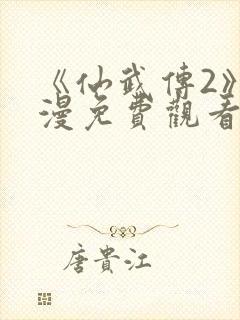 《仙武傳2》
漫免費觀看
唐貴江